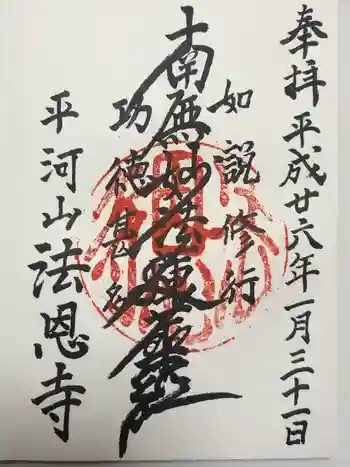 奉拝 平成廿六年一月三十一日
如説修行
南無妙法蓮華経
功徳甚多
平河山法恩寺